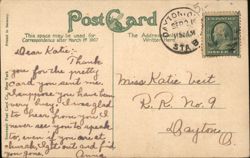 Post Card
This space may be used for
Correspondence after March 1st 1907
The Address
Written
DAYTON
STA
Dear Katie:-
Thank
you for the pretty
card you sent me.
I suppose you have been
very busy. I was glad
to hear from you. I
never see you to speak
to, even if you are at
church, light out and find
you gone.
Anna
Miss Katie Veit
R.R. No. 9
Dayton,
O.